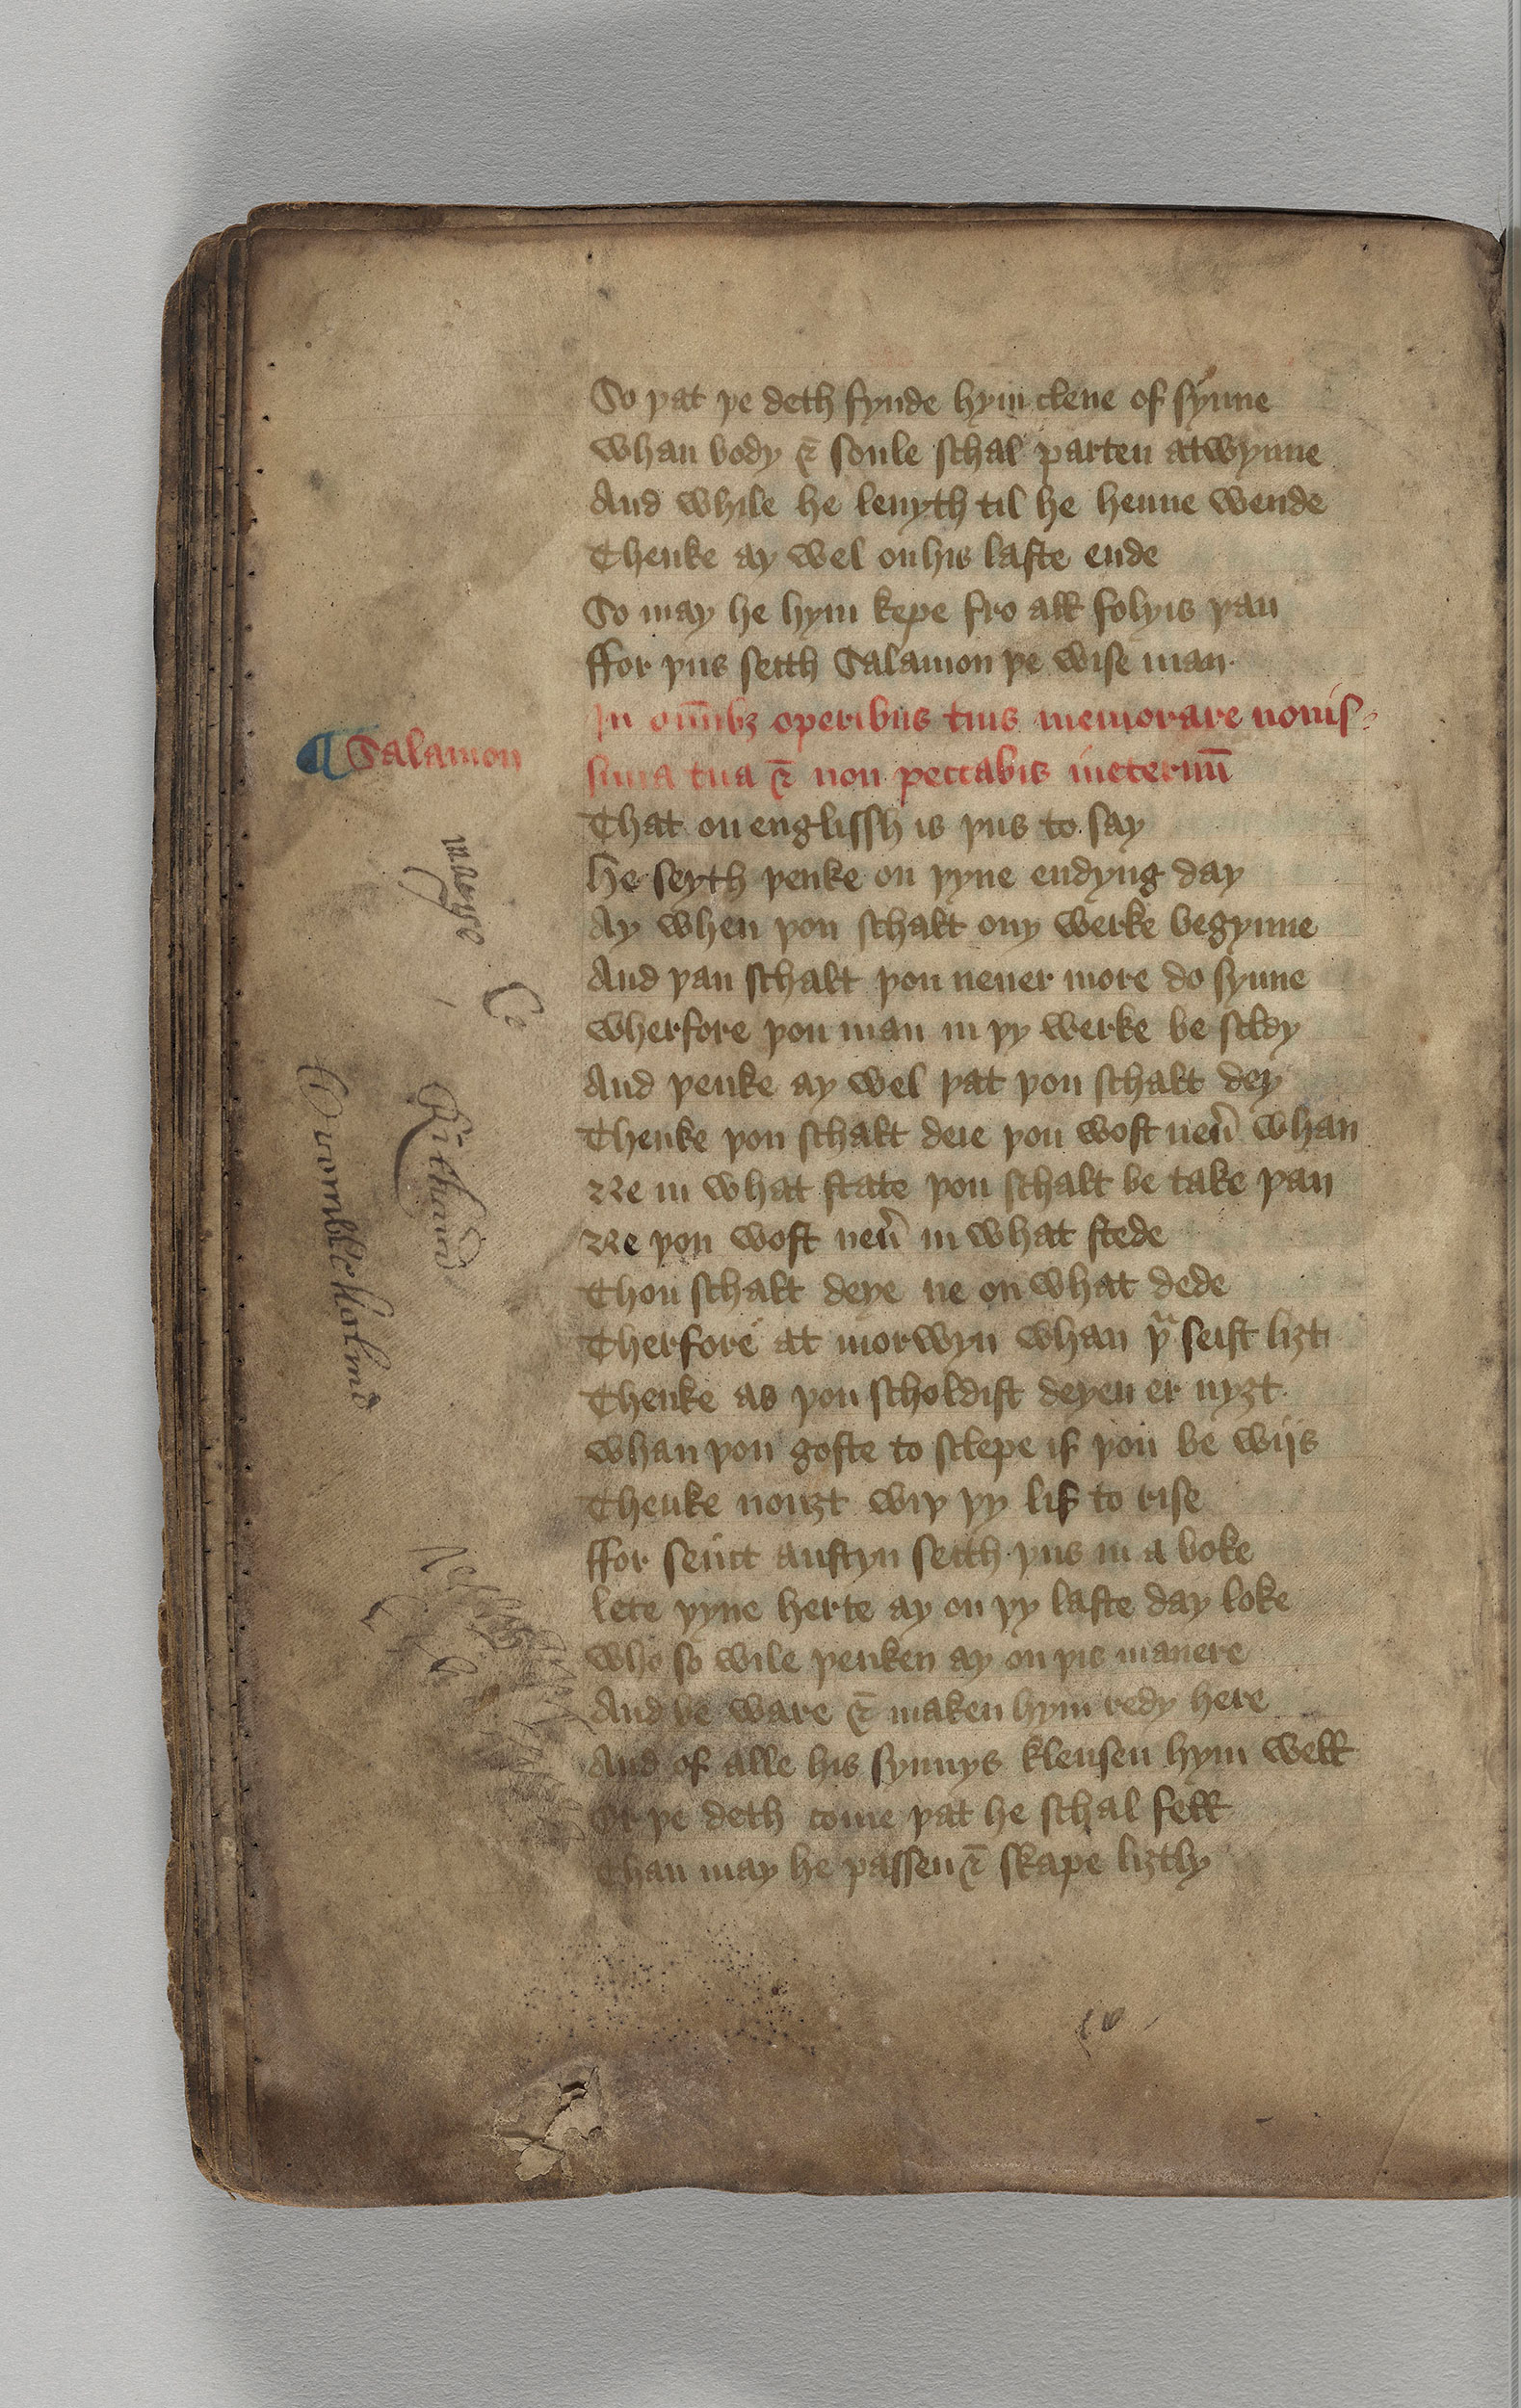 So þat þe deth fynde hym clene of synne
whan body & soule schal parten atwynne
And while he leuyth til he henne wende
Thenke ay wel on his laste ende
So may he hym kepe fro all folyis þan
ffor þus seith Salamon þe wise man
In oīnibȝ operibus tuis memorare nouis-
¶ Salamon
sima tua & non peccabis ineternū
That on englissh is þus to say
He seyth þenke on þyne endyng day
Ay when þou schalt ony werke begynne
And þan schalt þou neuer more do synne
wherfore þou man in þy werke be scley
And þenke ay wel þat þou schalt dey
Thenke þou schalt deie þou wost neu̾ whan
Ne in what state þou schalt be take þan
Ne þou wost neu̾ in what stede
Thou schalt deye ne on what dede
Therfore at morwyn whan þu seist liȝt
Thenke as þou scholdist deyen er nyȝt
whan þou goste to sclepe if þou be wijs
Thenke nouȝt wiþ þy lif to rise
ffor seint austyn seith þus in a boke
lete þyne herte ay on þy laste day loke
who so wile þenken ay on þis manere
And be ware & maken hym redy here
And of alle his synnys klensen hym well
Or þe deth come þat he schal fell
Than may he passen & skape liȝtly